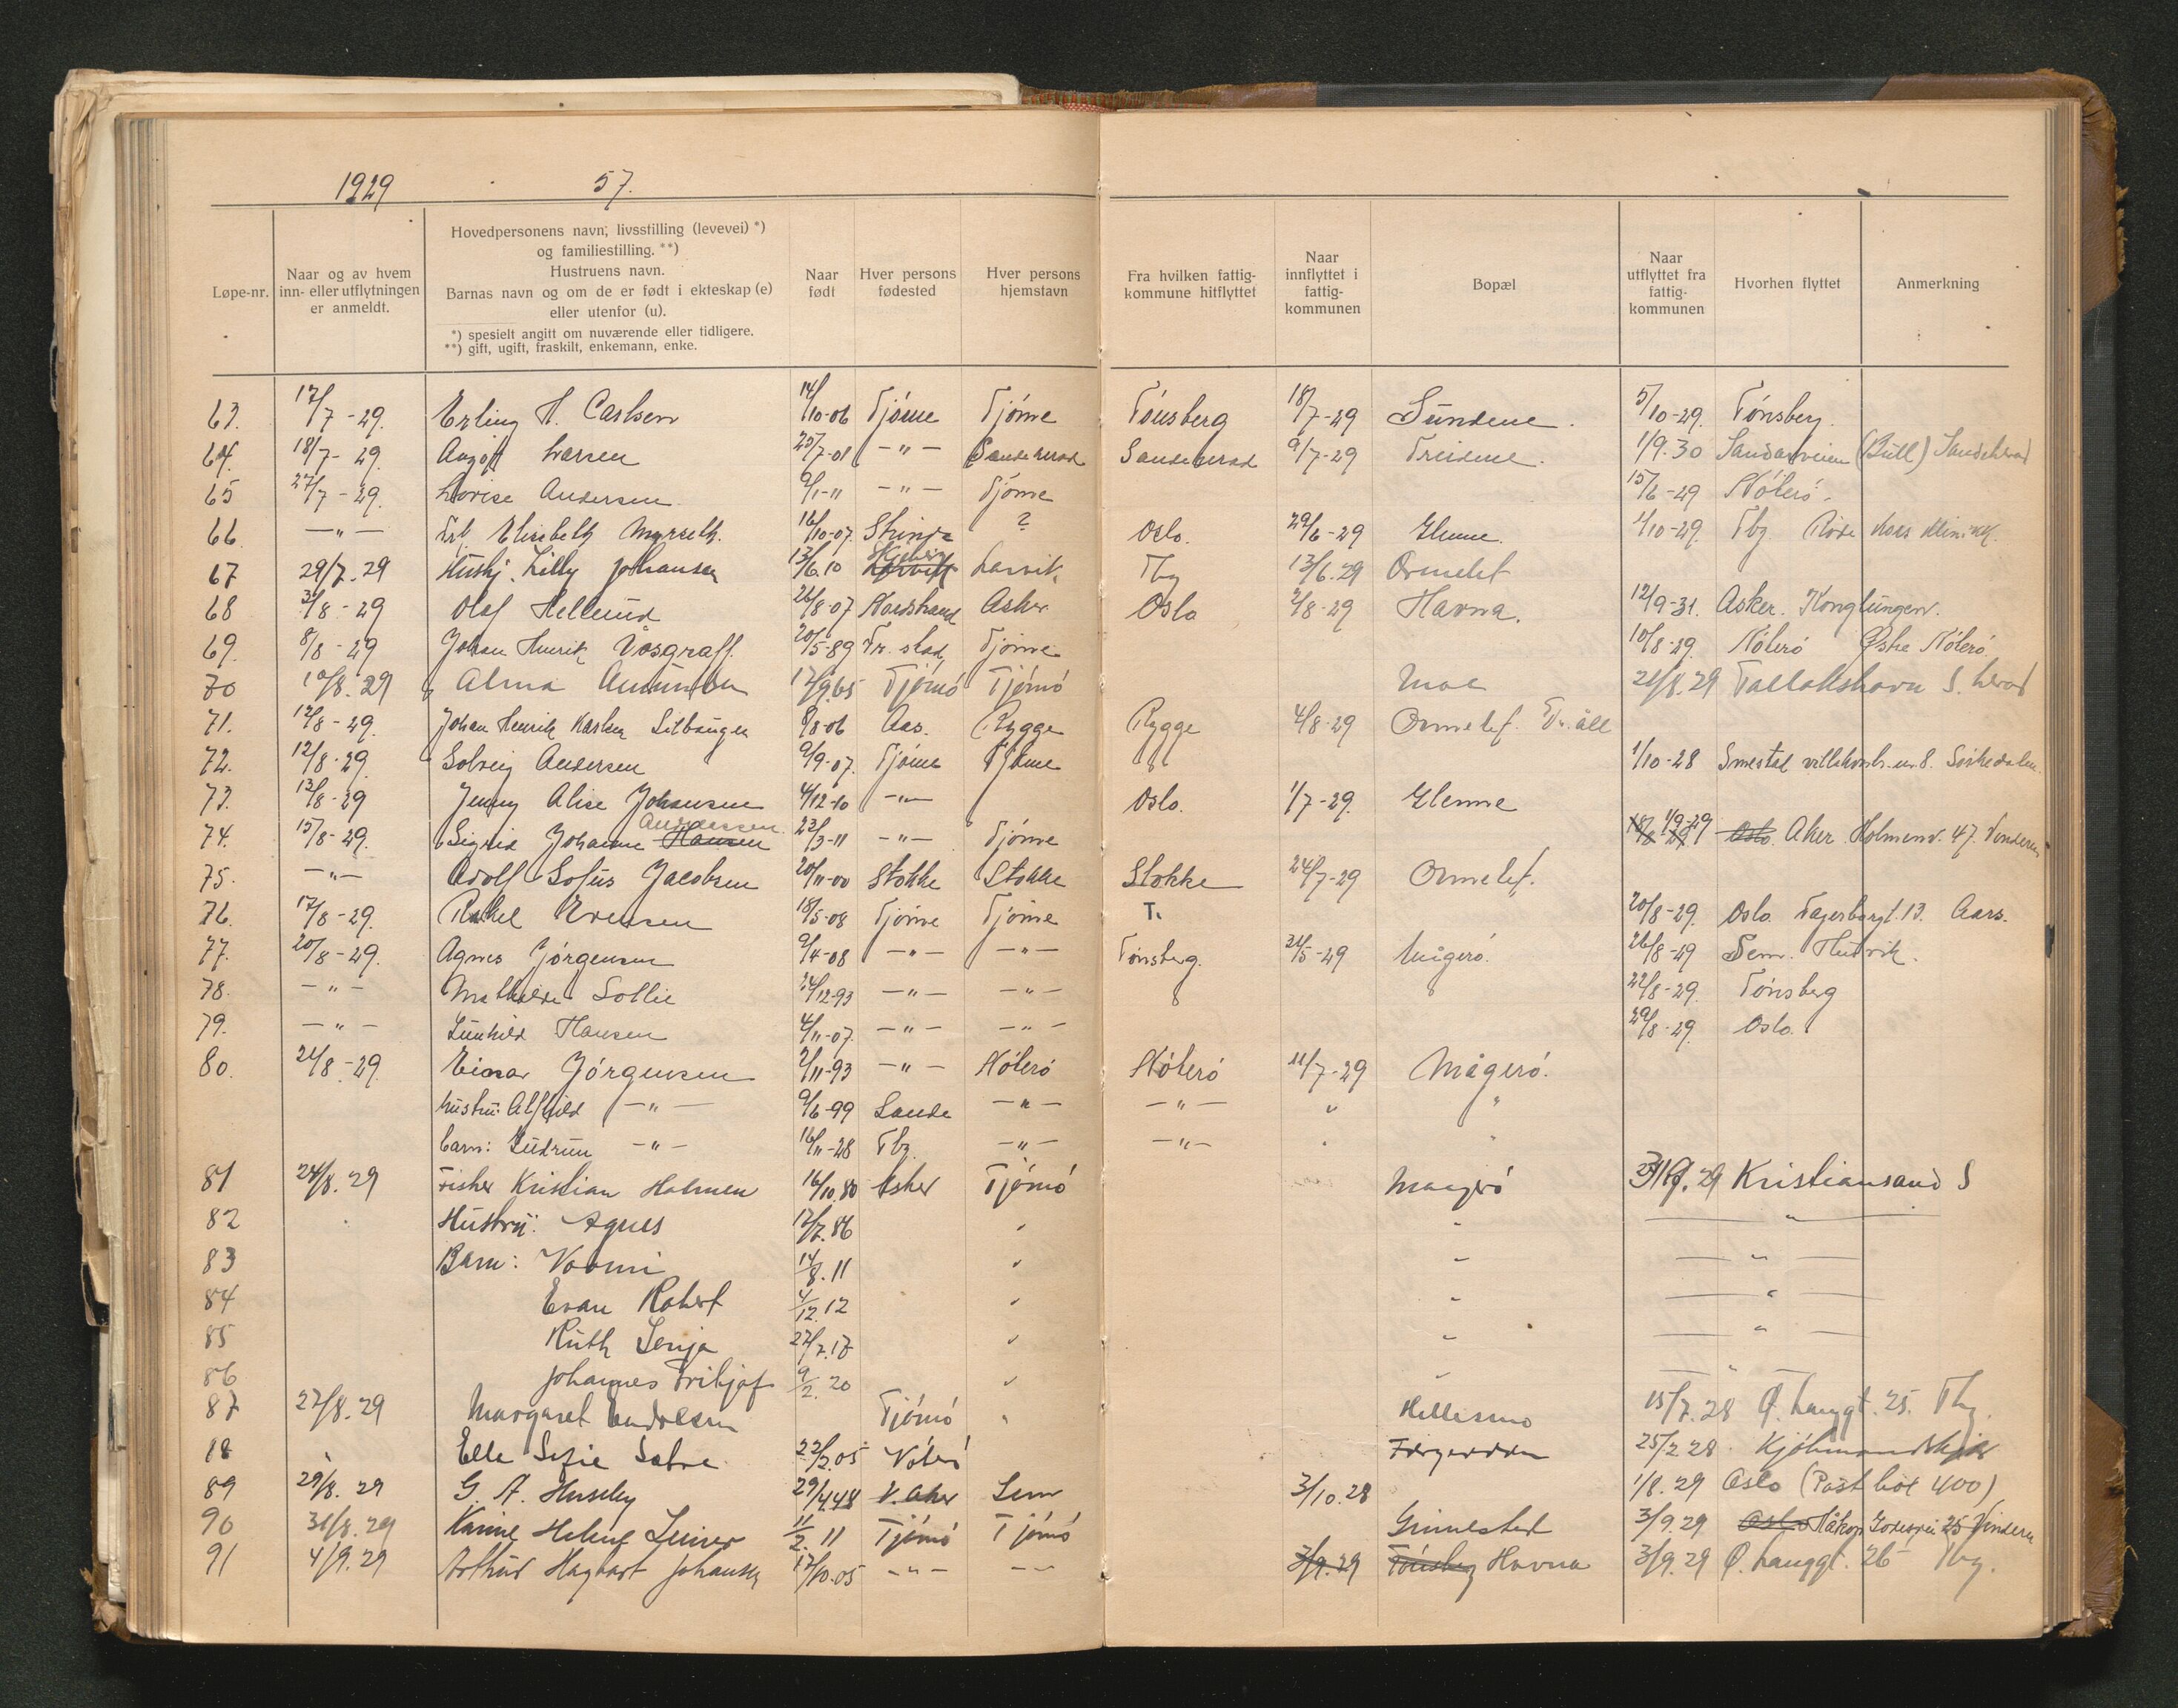 1929 57.
Løpe-nr. | Naar og av hvem inn- eller utflytningen er anmeldt. | Hovedpersonens navn, livsstilling (levevei) *) og familiestilling. **) Hustruens navn. Barnas navn og om de er født i ekteskap (e) eller utenfor (u). *) spesielt angitt om nuværende eller tidligere. **) gift, ugift, fraskilt, enkemann, enke. | Naar født | Hver persons fødested | Hver persons hjemstavn | Fra hvilken fattig-kommune hitflyttet | Naar innflyttet i fattig-kommunen | Bopæl | Naar utflyttet fra fattig-kommunen | Hvorhen flyttet | Anmerkning
63. 17/7-29. Erling H. Carlsen 14/10-06 Tjöme Tjöme Tönsberg 18/7-29 Sundene. 5/10-29. Tönsberg.
64. 18/7-29. Larsen 25/7-08 -"- Sandeherad Sandeherad 9/7-29 1/9.30 Sandarveien (Bull) Sandeherad
65 27/7-29. Lovise Andersen 9/1-11 -"- Tjöme 15/6-29 Nöterö.
66. -"- Frk. Elisabeth 16/10-07. Strinda ? Oslo. 29/6-29 Glenne. 1/10-29. Tbg Röde Kors Klinikk.
67 29/7.29 Hushj. Lilly Johansen 13/6.10 Larvik Tbg 13/6.29 Ormelet
68 3/8-29 Olaf Hellund 26/8-07 Nordstrand Asker Oslo 2/8-29 Havna. 12/9-31. Asker. Konglungen.
69. 8/8-29 Johan Henrik Vosgraff. 20/5-89 Fr.stad Tjöme 10/8-29. Nöterö Østre Nöterö
70 10/8.29 Alma 17/9.65 Tjömö Tjömö Moe 21/8.29 S. herad
71. 12/8-29. Johan Henrik Karlsen 8/8-06 Aas. Rygge Rygge 4/8-29 Ormelet.
72. 12/8-29. Solveig Andersen 9/9-07. Tjöme Tjöme 1/10-28 Smestad nr. 8. Sörkedalen
73. 13/8-29 Jenny Alise Johansen 4/12-10 -"- Oslo. 1/7-29. Glenne
74. 15/8-29. Sigrid Johanne Hansen Anderssen 23/3-11 -"- Tjöme 18/8 29 1/9-29 Oslo. Aker. Holmenv. 47. Vinderen
75. -"- Adolf Sofus Jacobsen 20/11-00 Stokke Stokke Stokke 24/7-29 Ormelet.
76. 17/8-29. Rakel Evensen 18/5-08 Tjöme Tjöme T. 20/8-29. Oslo. Fagerborgt. 13. Aars.
77. 20/8-29. Agnes Jörgensen 9/4-08 -"- -"- Tönsberg. 31/5-29 Mågerö. 26/8-29 Sem.
78. -"- Mathilde Sollie 24/12-93 -"- -"- 22/8-29. Tönsberg
79. -"- Gunhild Hansen 4/11-07. -"- -"- 29/8-29. Oslo.
80. 21/8-29. Einar Jörgensen 2/11-93 -"- Nöterö Nöterö 11/7-29 Mågerö.
hustru: Alfhild -"- 9/6-99 Sande -"- -"- " "
barn: Gudrun -"- 16/11-28 Tbg. -"- -"- " "
81 24/8.29 Fisker Kristian Holmen 16/10.80 Asker Tjömö Magerö 29 Kristiansand S
82 Hustru: Agnes 17/7.86 " " "
83 Barn: 14/8.11 " " "
84 Evan Robert 4/12.12 " " "
85 Ruth Senja 27/7.17 " " "
86 Johannes Fritjof 9/2.20 " " "
87 27/8.29 Margaret Tjömö " Hellesmo 15/7.28 Ø. Langgt. 25. Tbg.
88 " Elle Sofie 22/2.05 Nöterö 25/2 28
89 29/8.29 G. A. Huseby 29/4.48 V. Aker Sem 3/10.28 1/8.29 Oslo (Postbox 400)
90 31/8.29 Karine Helene 11/2.11 Tjömö Tjömö Grimestad 3/9.29 Oslo 25 Vinderen
91 4/9.29 Arthur Hagbart Johansen 17/10.05 -"- -"- 3/9.29 Tönsberg Havna 3/9.29 Ø. Langgt. 26 Tbg.